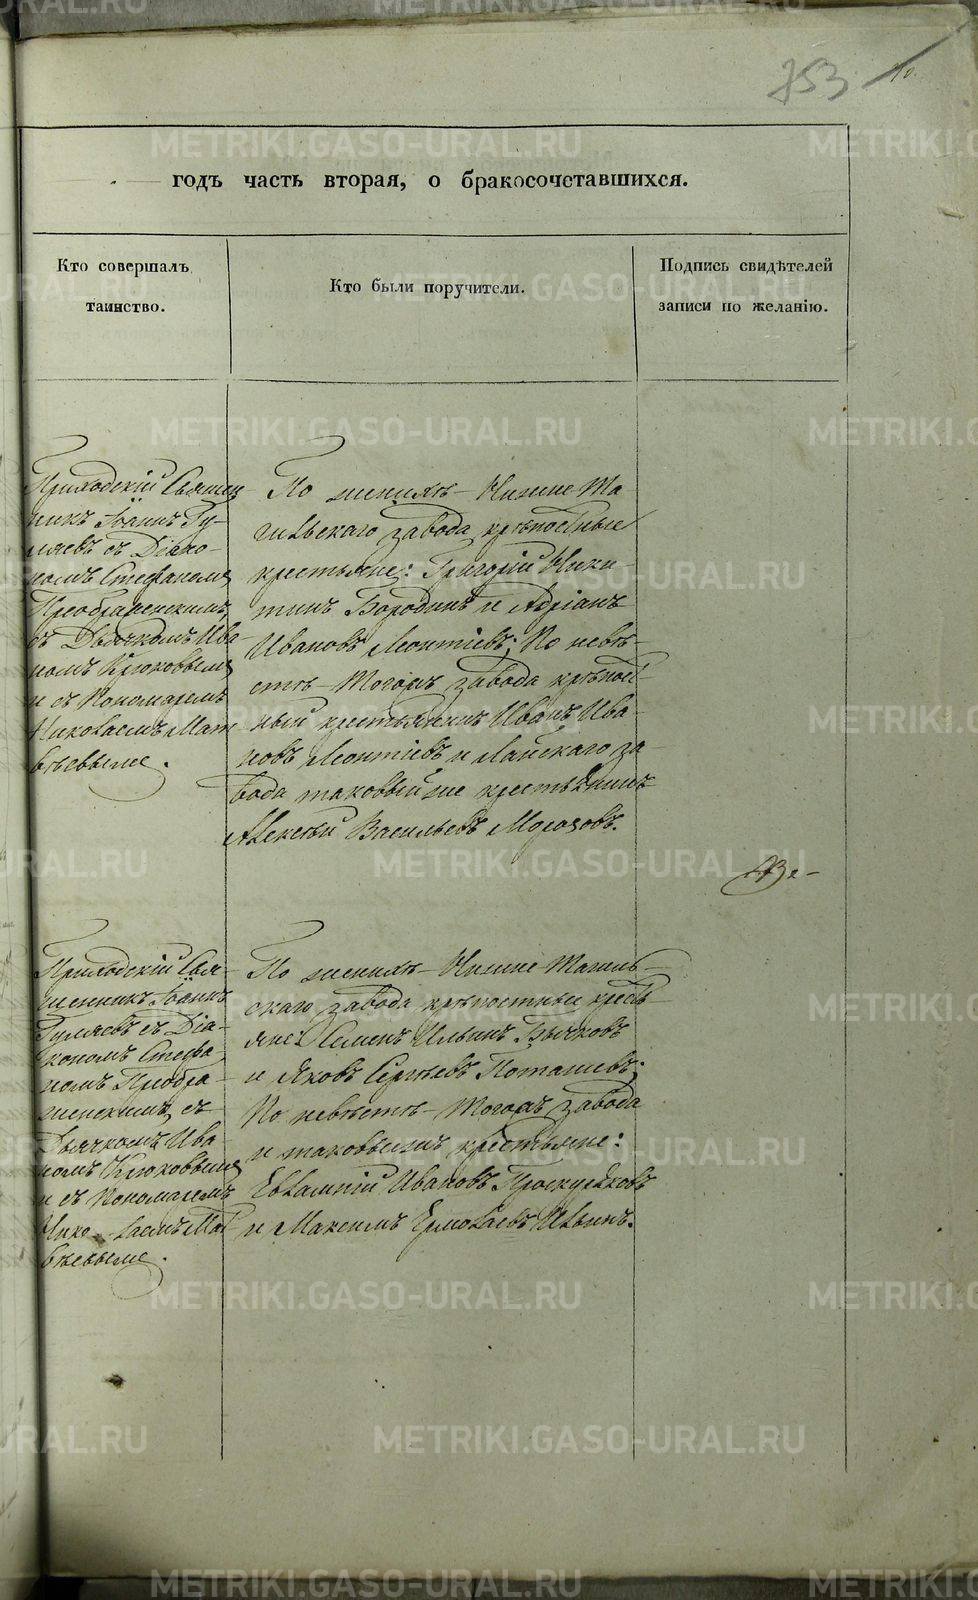 353
10.
годъ часть вторая, о бракосочетавшихся.
Кто совершалъ
таинство.
Кто были поручители.
Подпись свидѣтелей
записи по желанію.
Приходскій Священ
никъ Іоаннъ Гу-
ляевъ съ Діако-
номъ Стефаномъ
Преображенскимъ,
съ Дьячкомъ Ива-
номъ Крюковымъ
и съ Пономаремъ
Николаемъ Мат
вѣевымъ.
По женихѣ - Нижне Та
гильскаго завода крѣпостные
крестьяне: Григорій Ники-
тинъ Бородинъ и Адріанъ
Ивановъ Леонтіевъ; По невѣ-
стѣ - Тогожъ завода крѣпост-
ный крестьянинъ Иванъ Ива-
новъ Леонтіевъ и Лайскаго за-
вода таковый же крестьянинъ
Алексѣй Васильевъ Морозовъ.
Приходскій Свя-
щенникъ Іоаннъ
Гуляевъ съ Діа-
кономъ Стефа-
номъ Преобра-
женскимъ, съ
Дьячкомъ Ива-
номъ Крюковымъ
и съ Пономаремъ
Нико- лаемъ Мат
вѣевымъ.
По женихѣ - Нижне-Тагиль-
скаго завода крѣпостные кресть
яне: Семенъ Ильинъ Бычковъ
и Яковъ Сергѣевъ Поташевъ;
По невѣстѣ - Тогожъ завода
и таковыежъ крестьяне:
Евлампій Ивановъ Проскуряковъ
и Максимъ Ермолаевъ Ильинъ.
METRIKI.GASO-URAL.RU